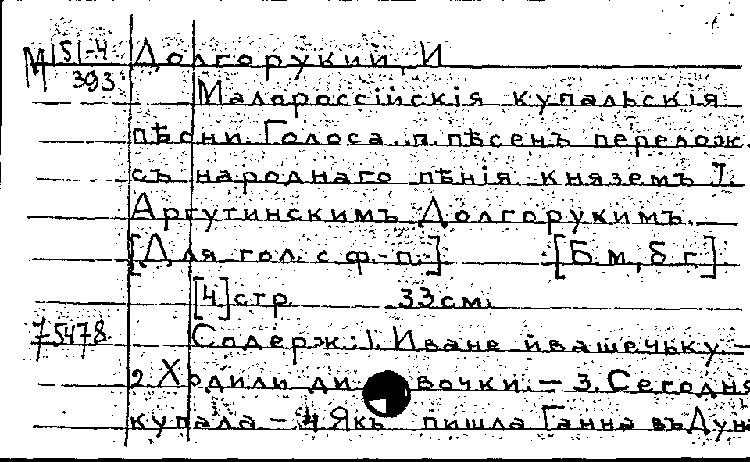 М 151-4 Долгорукий, И
393
Малороссiйскiя купальскiя
пѣсни. Голоса п. пѣсенъ перелож.
съ народнаго пѣнiя княземъ I.
Аргутинскимъ Долгорукимъ.
[Для гол. с ф.-п.] [Б.м, б г.]
[4] стр 33 см.
75478 Содерж.: 1. Иване ивашечьку. –
2. Ходили ди вочки. – 3. Сегодня
купала – 4. Якъ пишла Ганна въ Дуна